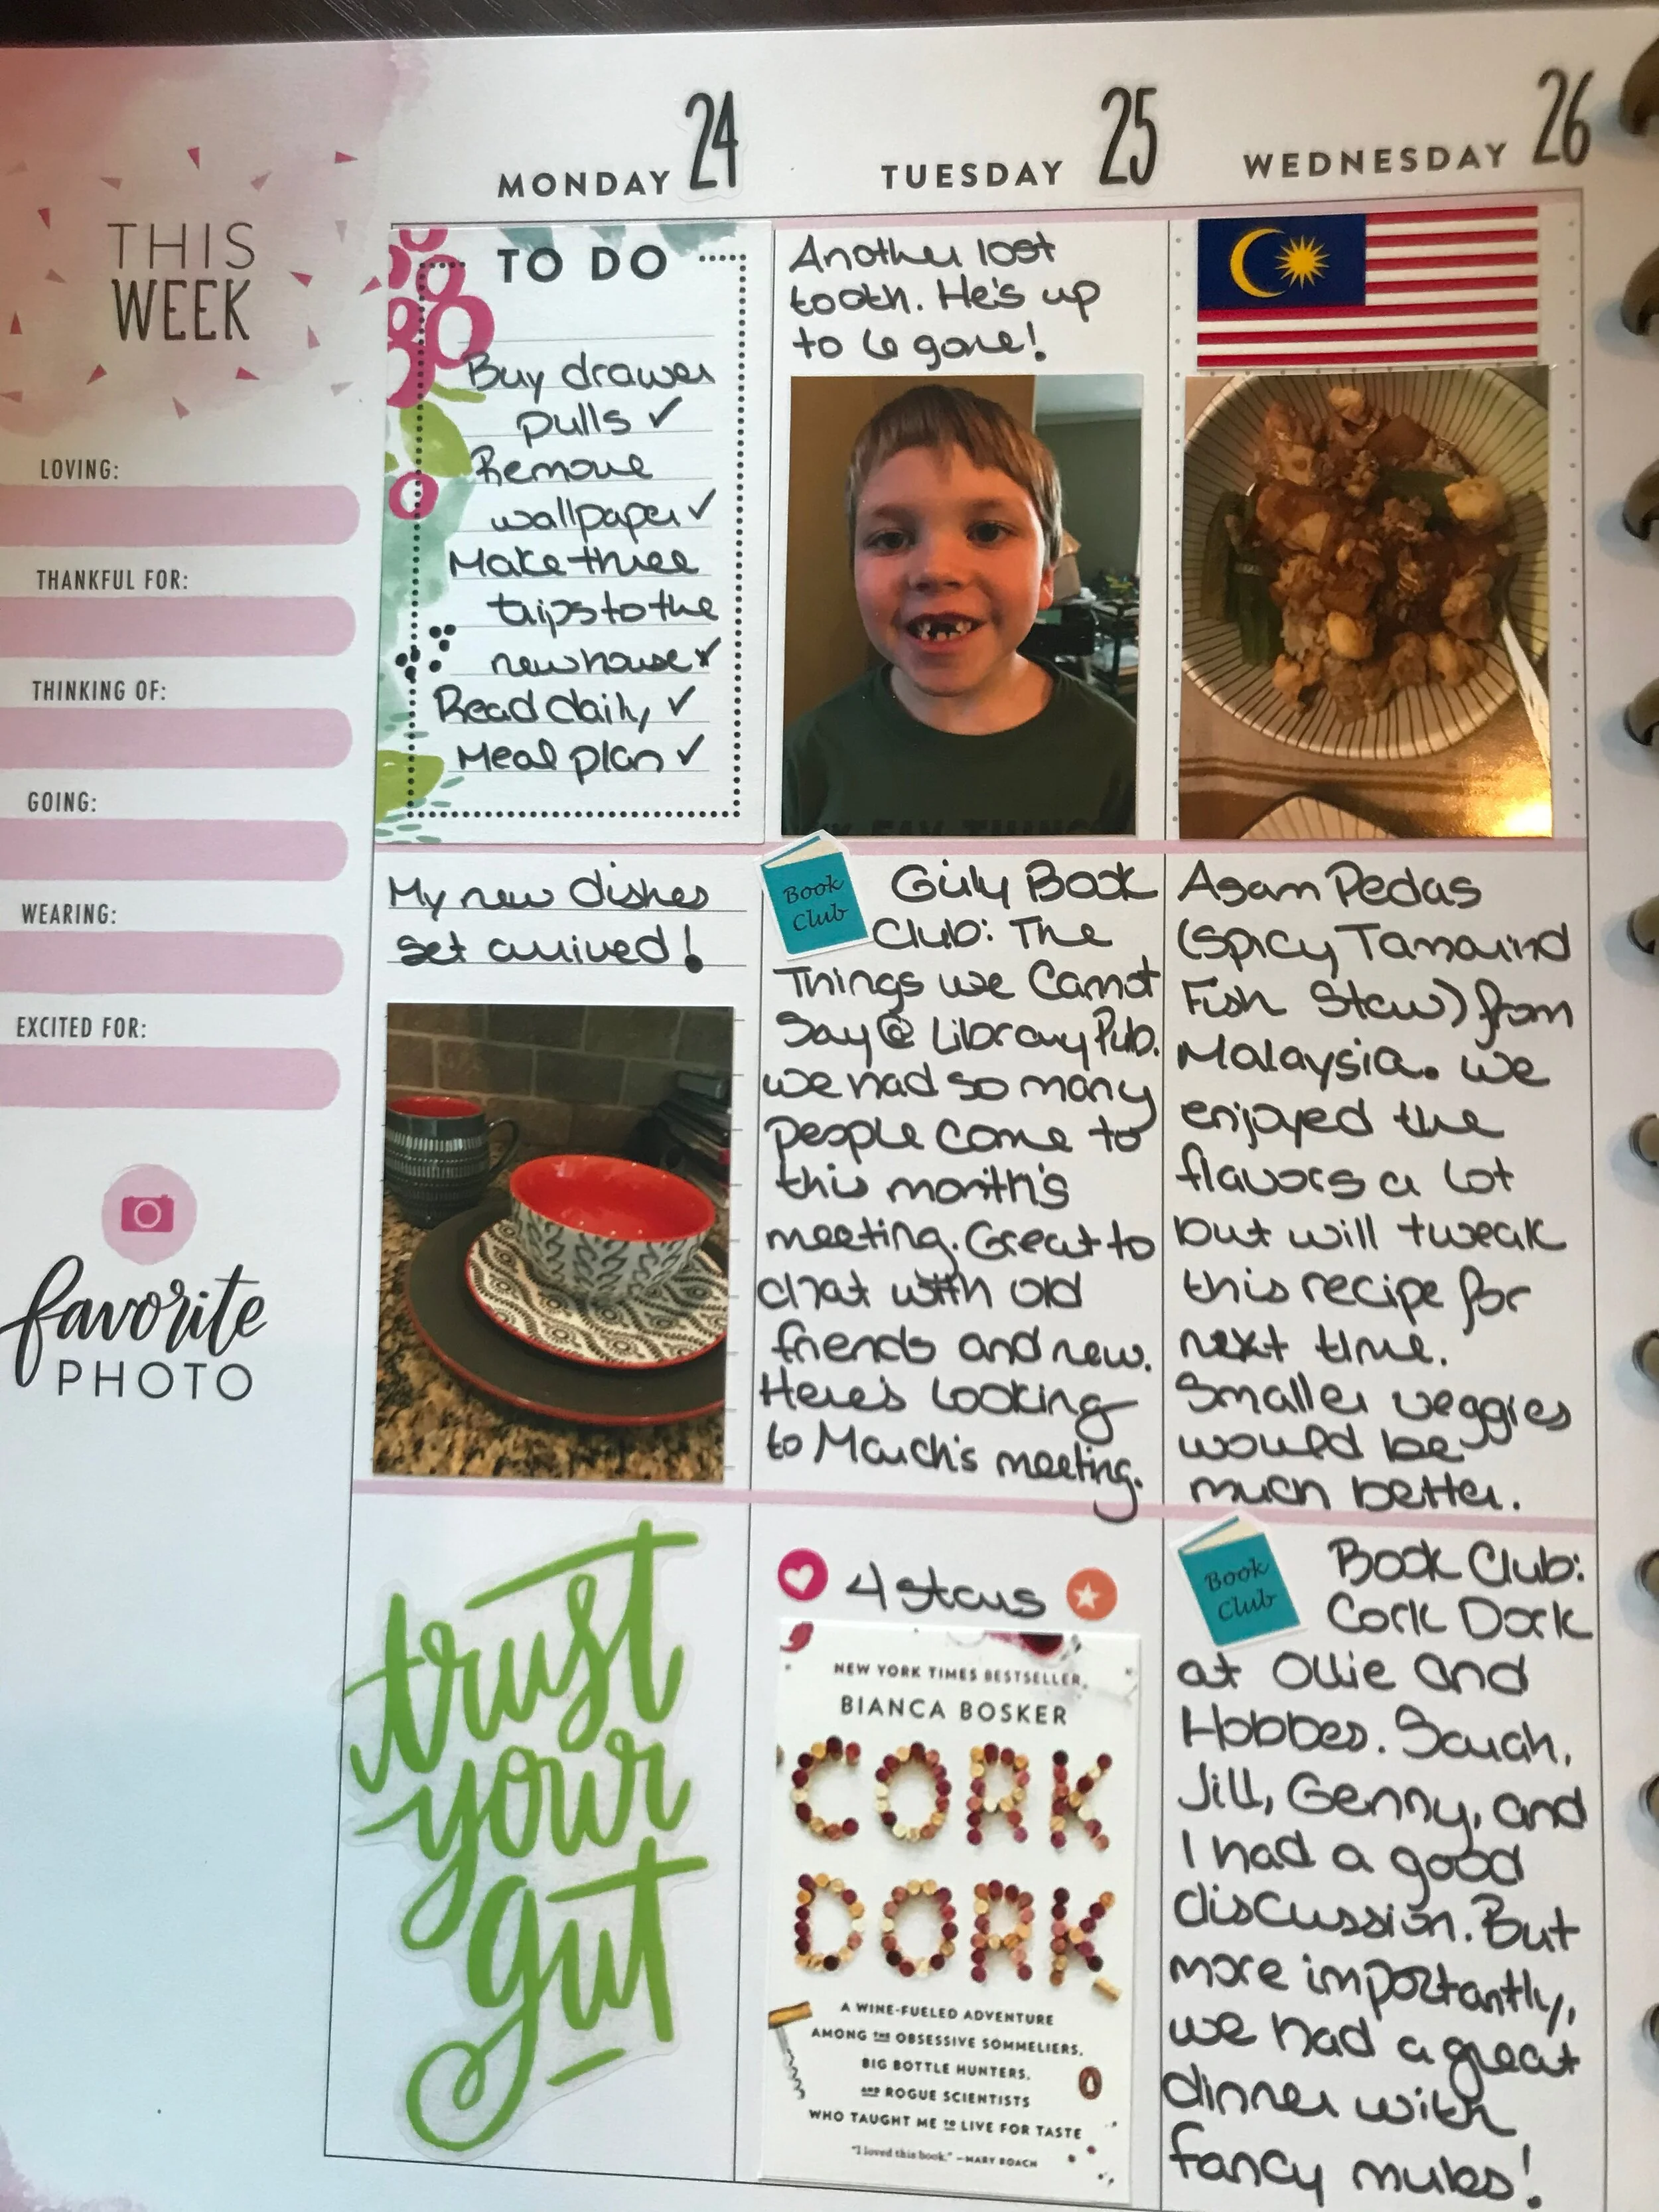 THIS
WEEK
LOVING:
THANKFUL FOR:
THINKING OF:
GOING:
WEARING:
EXCITED FOR:
favorite
PHOTO
MONDAY 24
TO DO
Buy drawer
pulls ✓
Remove
wallpaper ✓
Make three
trips to the
new house ✓
Read daily ✓
Meal plan ✓
My new dishes
set arrived!
trust
your
gut
TUESDAY 25
Another lost
tooth. He's up
to 6 gone!
Book
Club
Girly Book
Club: The
Things we Cannot
Say @ Library Pub.
we had so many
people come to
this month's
meeting. Great to
chat with old
friends and new.
Here's looking
to March's meeting.
4 stars
NEW YORK TIMES BESTSELLER
BIANCA BOSKER
CORK
DORK
A WINE-FUELED ADVENTURE
AMONG THE OBSESSIVE SOMMELIERS,
BIG BOTTLE HUNTERS,
AND ROGUE SCIENTISTS
WHO TAUGHT ME TO LIVE FOR TASTE
"I loved this book." —MARY ROACH
WEDNESDAY 26
Asam Pedas
(Spicy Tamarind
Fish Stew) from
Malaysia. we
enjoyed the
flavors a lot
but will tweak
this recipe for
next time.
Smaller veggies
would be
much better.
Book
Club
Book Club:
Cork Dork
at Ollie and
Hobbes. Sarah,
Jill, Genny, and
I had a good
discussion. But
more importantly,
we had a great
dinner with
fancy mules!